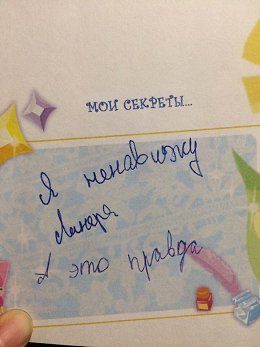 МОИ СЕКРЕТЫ...
Я ненавижу
это правда